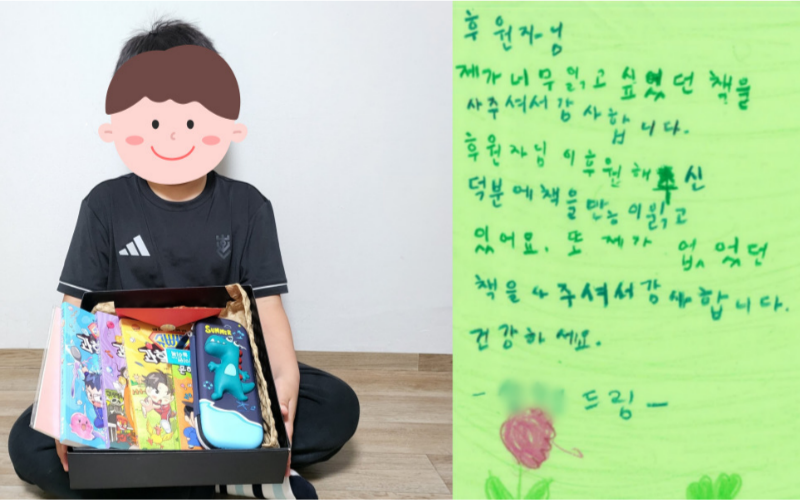 후원자님
제가 너무 읽고 싶었던 책을
사주셔서 감사합니다.
후원자님이 후원해주신
덕분에 책을 많이 읽고
있어요. 또 제가 없었던
책을 사주셔서 감사합니다.
건강하세요.
- 드림 -